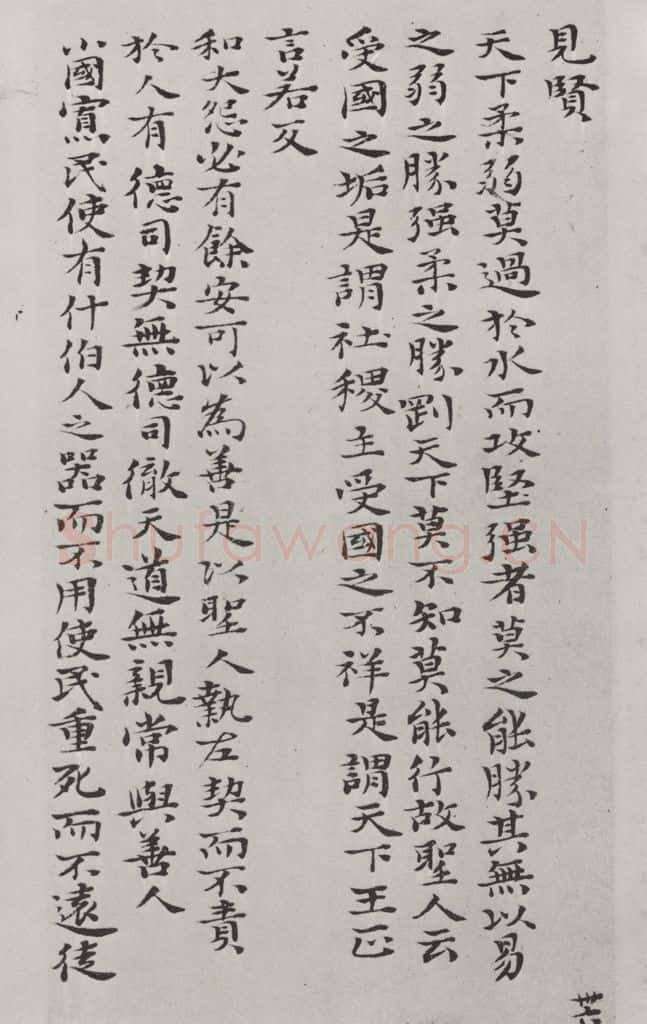 見賢
天下柔弱莫過於水而攻堅强者莫之能勝其無以易
之弱之勝强柔之勝剛天下莫不知莫能行故聖人云
受國之垢是謂社稷主受國之不祥是謂天下王正
言若反
和大怨必有餘安可以為善是以聖人執左契而不責
於人有德司契無德司徹天道無親常與善人
小國寡民使有什伯人之器而不用使民重死而不遠徙
卅六
Shufawang.CN